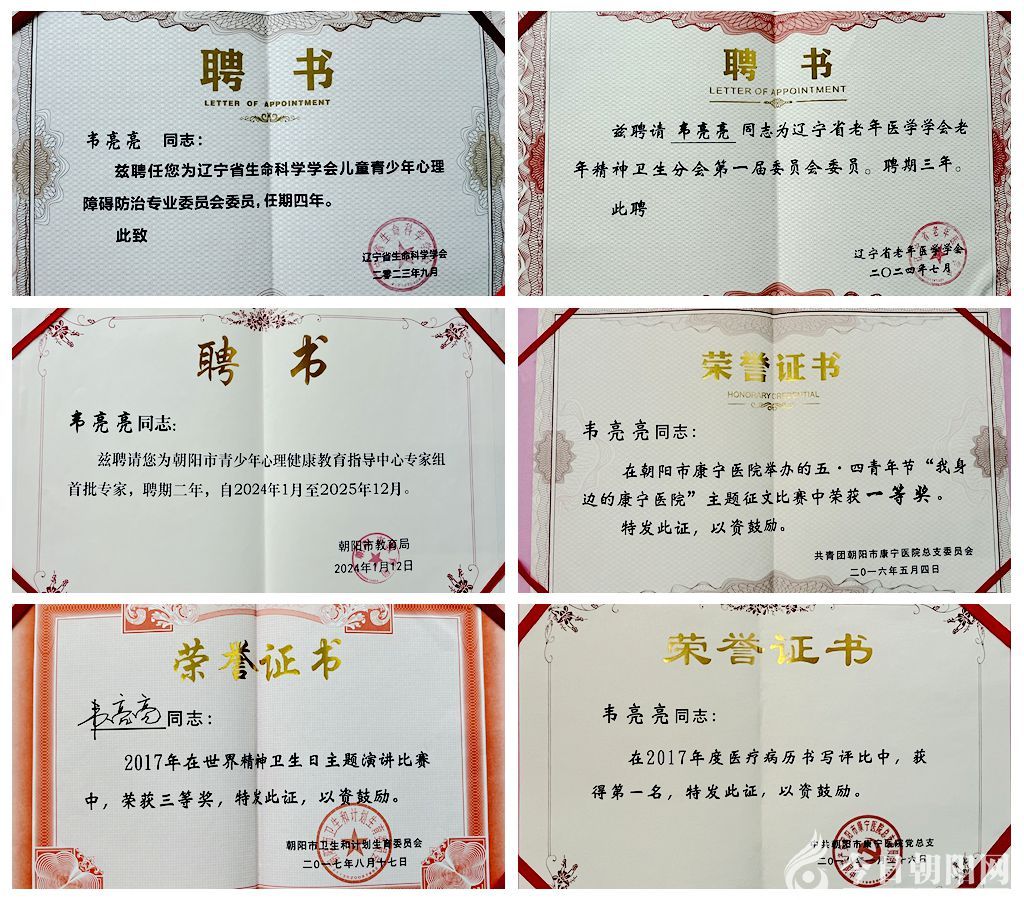 聘 书
LETTER OF APPOINTMENT
韦亮亮 同志：
兹聘任您为辽宁省生命科学学会儿童青少年心理
障碍防治专业委员会委员，任期四年。
此致
辽宁省生命科学学会
二零二三年九月
聘 书
LETTER OF APPOINTMENT
兹聘请 韦亮亮 同志为辽宁省老年医学学会老
年精神卫生分会第一届委员会委员。聘期三年。
此聘
辽宁省老年医学学会
二〇二四年七月
聘 书
韦亮亮同志：
兹聘请您为朝阳市青少年心理健康教育指导中心专家组
首批专家，聘期二年，自2024年1月至2025年12月。
朝阳市教育局
2024年1月12日
荣誉证书
HONORARY CREDENTIAL
韦亮亮同志：
在朝阳市康宁医院举办的五·四青年节“我身
边的康宁医院”主题征文比赛中荣获一等奖。
特发此证，以资鼓励。
共青团朝阳市康宁医院总支委员会
二〇一六年五月四日
荣誉证书
韦亮亮同志：
2017年在世界精神卫生日主题演讲比赛
中，荣获三等奖，特发此证，以资鼓励。
朝阳市卫生和计划生育委员会
二〇一七年八月十七日
荣誉证书
韦亮亮同志：
在2017年度医疗病历书写评比中，获
得第一名，特发此证，以资鼓励。
中共朝阳市康宁医院党总支
今日朝阳网